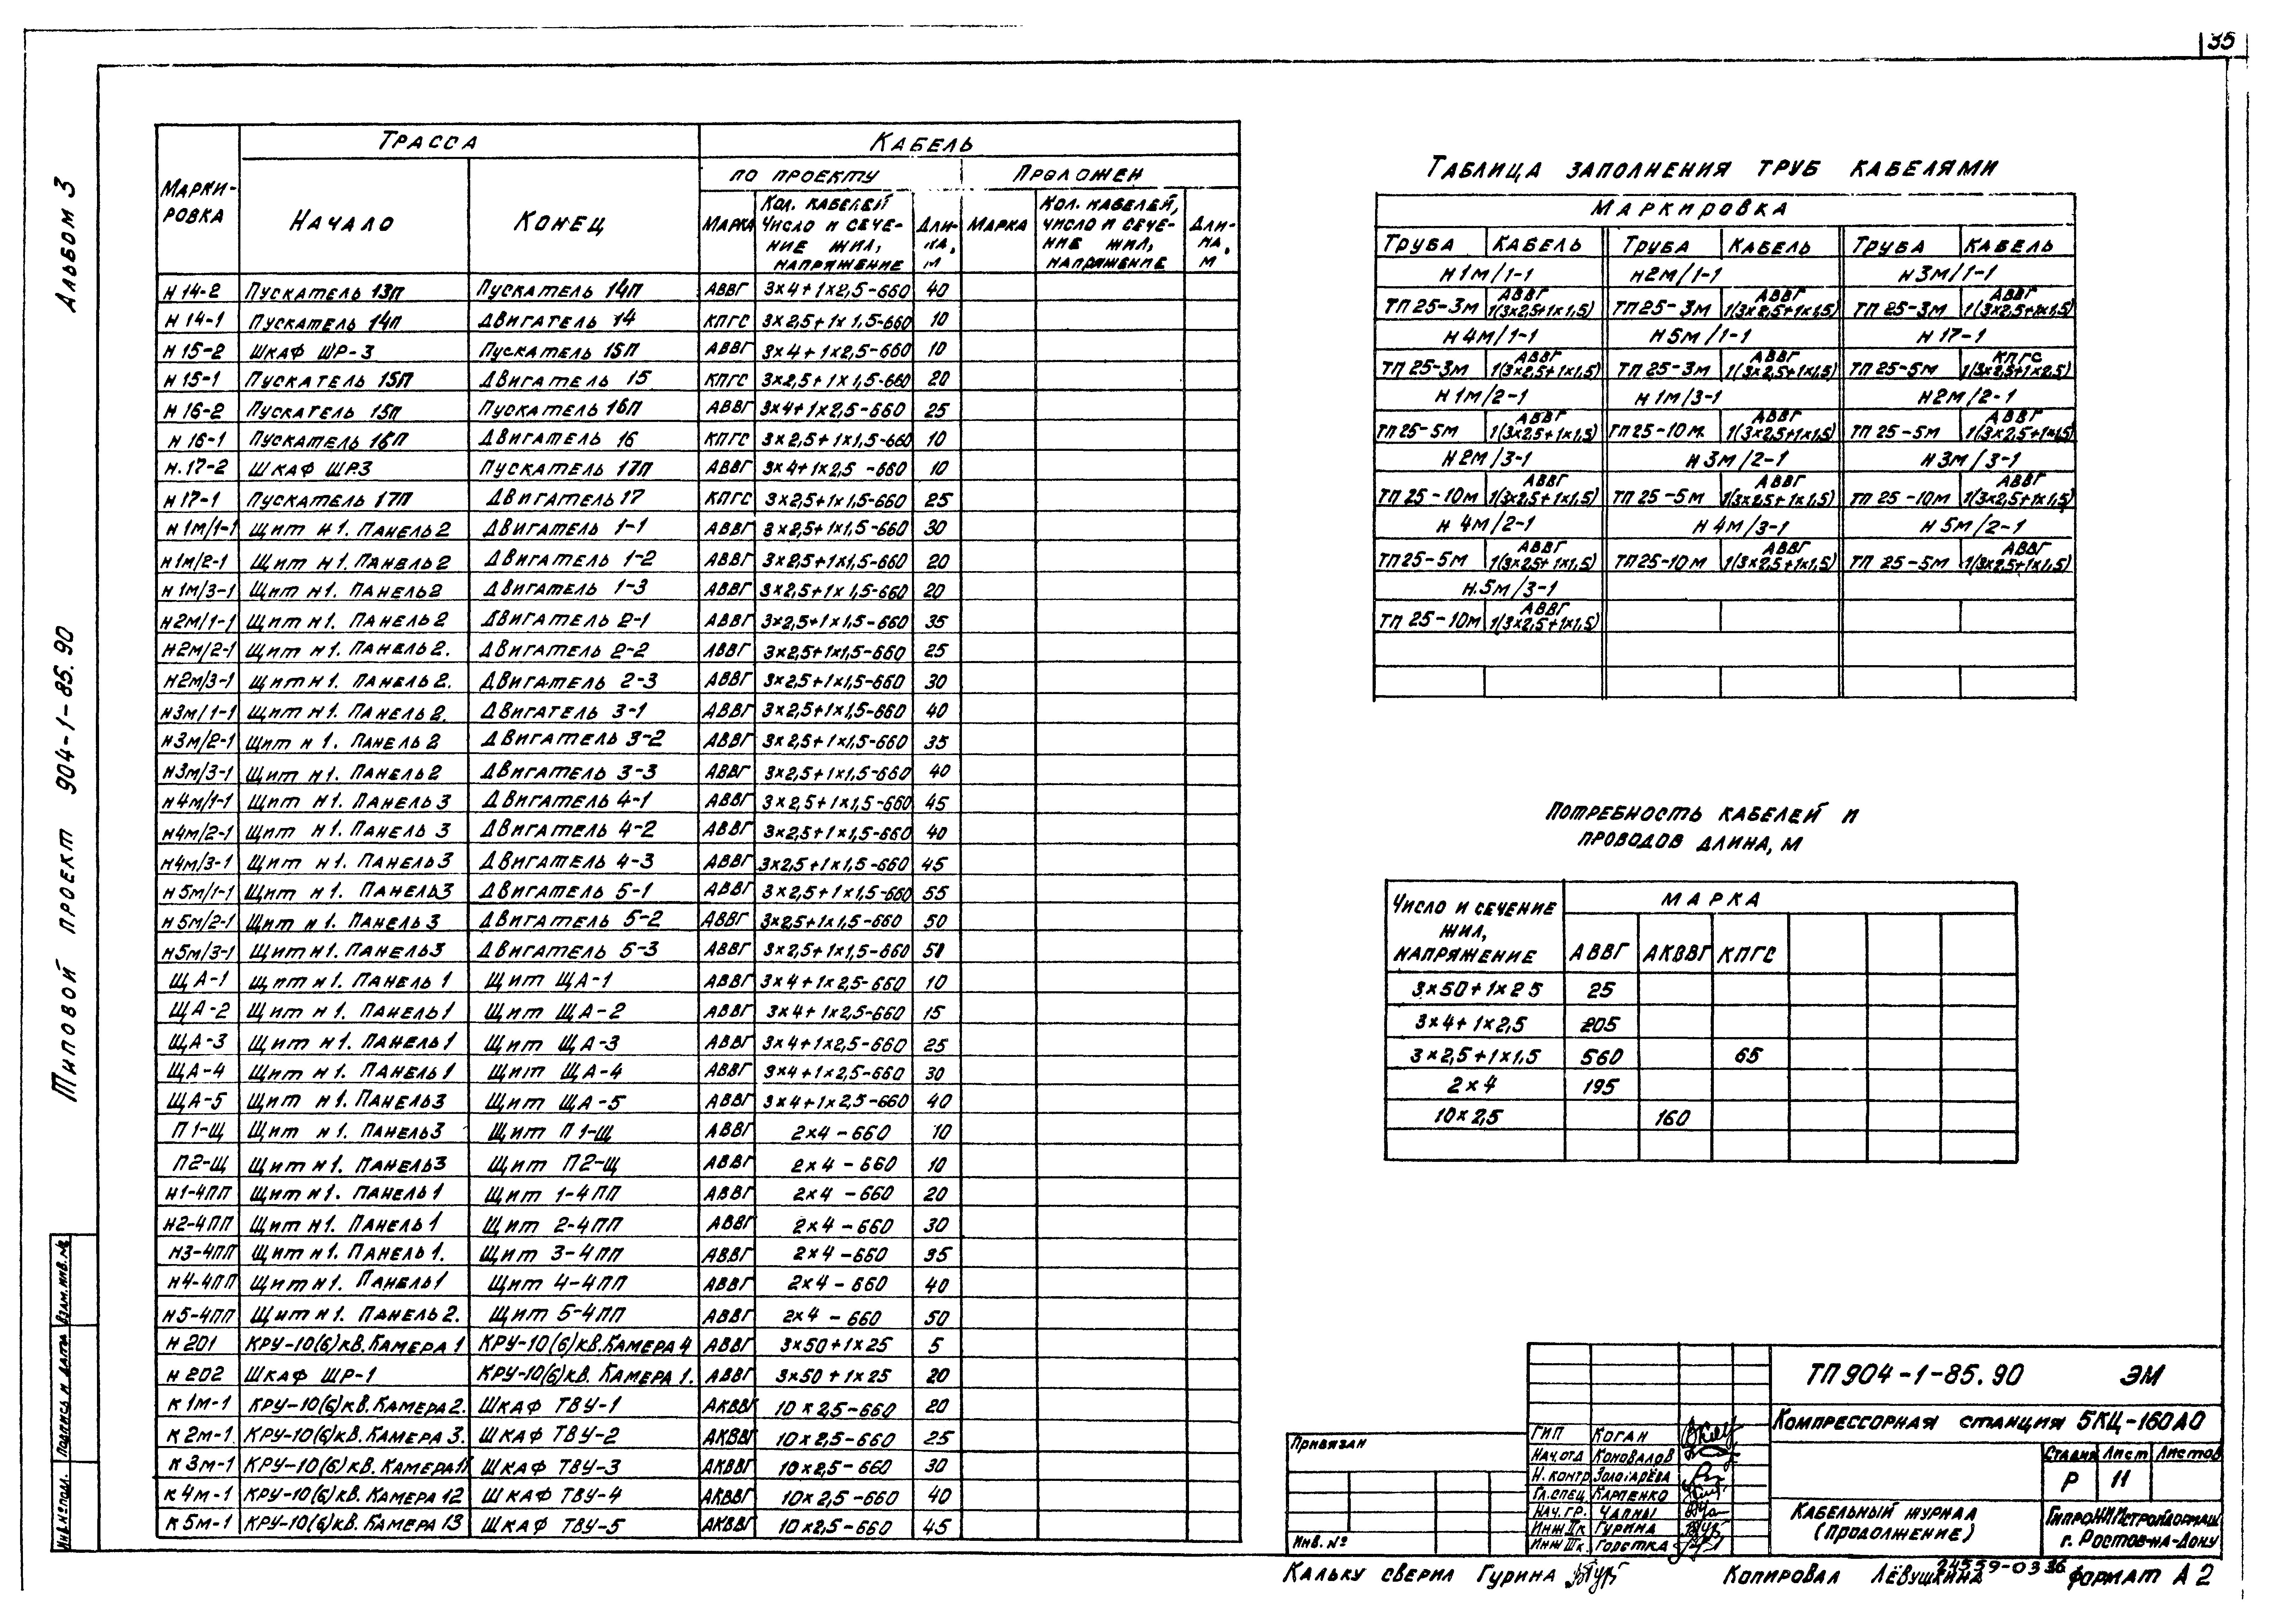 35
Альбом 3
Типовой проект 904-1-85.90
Инв.№ подл. Подпись и дата Взам.инв.№
Марки-ровка Трасса Кабель
Начало Конец по проекту Проложен
Марка Кол. кабелей Число и сечение жил, напряжение Дли-на, м Марка Кол. кабелей, число и сечение жил, напряжение Дли-на, м
Н14-2 Пускатель 13П Пускатель 14П АВВГ 3×4+1×2,5-660 40
Н14-1 Пускатель 14П Двигатель 14 КПГС 3×2,5+1×1,5-660 10
Н15-2 Шкаф ШР-3 Пускатель 15П АВВГ 3×4+1×2,5-660 10
Н15-1 Пускатель 15П Двигатель 15 КПГС 3×2,5+1×1,5-660 20
Н16-2 Пускатель 15П Пускатель 16П АВВГ 3×4+1×2,5-660 25
Н16-1 Пускатель 16П Двигатель 16 КПГС 3×2,5+1×1,5-660 10
Н.17-2 Шкаф ШР.3 Пускатель 17П АВВГ 3×4+1×2,5-660 10
Н17-1 Пускатель 17П Двигатель 17 КПГС 3×2,5+1×1,5-660 25
Н1м/1-1 Щит Н1. Панель 2 Двигатель 1-1 АВВГ 3×2,5+1×1,5-660 30
Н1м/2-1 Щит Н1. Панель 2 Двигатель 1-2 АВВГ 3×2,5+1×1,5-660 20
Н1м/3-1 Щит Н1. Панель 2 Двигатель 1-3 АВВГ 3×2,5+1×1,5-660 20
Н2м/1-1 Щит Н1. Панель 2 Двигатель 2-1 АВВГ 3×2,5+1×1,5-660 35
Н2м/2-1 Щит Н1. Панель 2. Двигатель 2-2 АВВГ 3×2,5+1×1,5-660 25
Н2м/3-1 Щит Н1. Панель 2. Двигатель 2-3 АВВГ 3×2,5+1×1,5-660 30
Н3м/1-1 Щит Н1. Панель 2. Двигатель 3-1 АВВГ 3×2,5+1×1,5-660 40
Н3м/2-1 Щит Н1. Панель 2 Двигатель 3-2 АВВГ 3×2,5+1×1,5-660 35
Н3м/3-1 Щит Н1. Панель 2 Двигатель 3-3 АВВГ 3×2,5+1×1,5-660 40
Н4м/1-1 Щит Н1. Панель 3 Двигатель 4-1 АВВГ 3×2,5+1×1,5-660 45
Н4м/2-1 Щит Н1. Панель 3 Двигатель 4-2 АВВГ 3×2,5+1×1,5-660 40
Н4м/3-1 Щит Н1. Панель 3 Двигатель 4-3 АВВГ 3×2,5+1×1,5-660 45
Н5м/1-1 Щит Н1. Панель 3 Двигатель 5-1 АВВГ 3×2,5+1×1,5-660 55
Н5м/2-1 Щит Н1. Панель 3 Двигатель 5-2 АВВГ 3×2,5+1×1,5-660 50
Н5м/3-1 Щит Н1. Панель 3 Двигатель 5-3 АВВГ 3×2,5+1×1,5-660
ЩА-1 Щит Н1. Панель 1 Щит ЩА-1 АВВГ 3×4+1×2,5-660 10
ЩА-2 Щит Н1. Панель 1 Щит ЩА-2 АВВГ 3×4+1×2,5-660 15
ЩА-3 Щит Н1. Панель 1 Щит ЩА-3 АВВГ 3×4+1×2,5-660 25
ЩА-4 Щит Н1. Панель 1 Щит ЩА-4 АВВГ 3×4+1×2,5-660 30
ЩА-5 Щит Н1. Панель 3 Щит ЩА-5 АВВГ 3×4+1×2,5-660 40
П1-Щ Щит Н1. Панель 3 Щит П1-Щ АВВГ 2×4-660 10
П2-Щ Щит Н1. Панель 3 Щит П2-Щ АВВГ 2×4-660 10
Н1-4ПП Щит Н1. Панель 1 Щит 1-4ПП АВВГ 2×4-660 20
Н2-4ПП Щит Н1. Панель 1 Щит 2-4ПП АВВГ 2×4-660 30
Н3-4ПП Щит Н1. Панель 1. Щит 3-4ПП АВВГ 2×4-660 35
Н4-4ПП Щит Н1. Панель 1 Щит 4-4ПП АВВГ 2×4-660 40
Н5-4ПП Щит Н1. Панель 2. Щит 5-4ПП АВВГ 2×4-660 50
Н201 КРУ-10(6)кв.Камера 1 КРУ-10(6)кв.Камера 4 АВВГ 3×50+1×25 5
Н202 Шкаф ШР-1 КРУ-10(6)кв. Камера 1. АВВГ 3×50+1×25 20
К1м-1 КРУ-10(6)кв.Камера 2. Шкаф ТВУ-1 АКВВГ 10×2,5-660 20
К2м-1. КРУ-10(6)кв.Камера 3. Шкаф ТВУ-2 АКВВГ 10×2,5-660 25
К3м-1 КРУ-10(6)кв.Камера 11 Шкаф ТВУ-3 АКВВГ 10×2,5-660 30
К4м-1 КРУ-10(6)кв. Камера 12 Шкаф ТВУ-4 АКВВГ 10×2,5-660 40
К5м-1 КРУ-10(6)кв. Камера 13 Шкаф ТВУ-5 АКВВГ 10×2,5-660 45
Таблица заполнения труб кабелями
Маркировка
Труба Кабель Труба Кабель Труба Кабель
Н1м/1-1 Н2м/1-1 Н3м/1-1
ТП25-3м АВВГ 1(3×2,5+1×1,5) ТП25-3м АВВГ 1(3×2,5+1×1,5) ТП25-3м АВВГ 1(3×2,5+1×1,5)
Н4м/1-1 Н5м/1-1 Н17-1
ТП25-3м АВВГ 1(3×2,5+1×1,5) ТП25-3м АВВГ 1(3×2,5+1×1,5) ТП25-5м КПГС 1(3×2,5+1×2,5)
Н1м/2-1 Н1м/3-1 Н2м/2-1
ТП25-5м АВВГ 1(3×2,5+1×1,5) ТП25-10м. АВВГ 1(3×2,5+1×1,5) ТП25-5м АВВГ 1(3×2,5+1×1,5)
Н2м/3-1 Н3м/2-1 Н3м/3-1
ТП25-10м АВВГ 1(3×2,5+1×1,5) ТП25-5м АВВГ 1(3×2,5+1×1,5) ТП25-10м АВВГ 1(3×2,5+1×1,5)
Н4м/2-1 Н4м/3-1 Н5м/2-1
ТП25-5м АВВГ 1(3×2,5+1×1,5) ТП25-10м АВВГ 1(3×2,5+1×1,5) ТП25-5м АВВГ 1(3×2,5+1×1,5)
Н.5м/3-1
ТП25-10м АВВГ 1(3×2,5+1×1,5)
Потребность кабелей и
проводов длина, м
Число и сечение жил, напряжение Марка
АВВГ АКВВГ КПГС
3×50+1×25 25
3×4+1×2,5 205
3×2,5+1×1,5 560 65
2×4 195
10×2,5 160
Привязан
Инв. №
ГИП Коган
Нач.отд Коновалов
Н.контр Золотарёва
Гл.спец. Карпенко
Нач.гр. Чапны
Инж IIк Гурина
Инж IIIк. Горетка
ТП904-1-85.90 ЭМ
Компрессорная станция 5КЦ-160АО
Стадия Лист Листов
Р 11
Кабельный журнал
(продолжение)
ГипроНИИстройдормаш
г. Ростов-на-Дону
Кальку сверил Гурина Копировал Лёвушкина 24559-03 36 формат А2